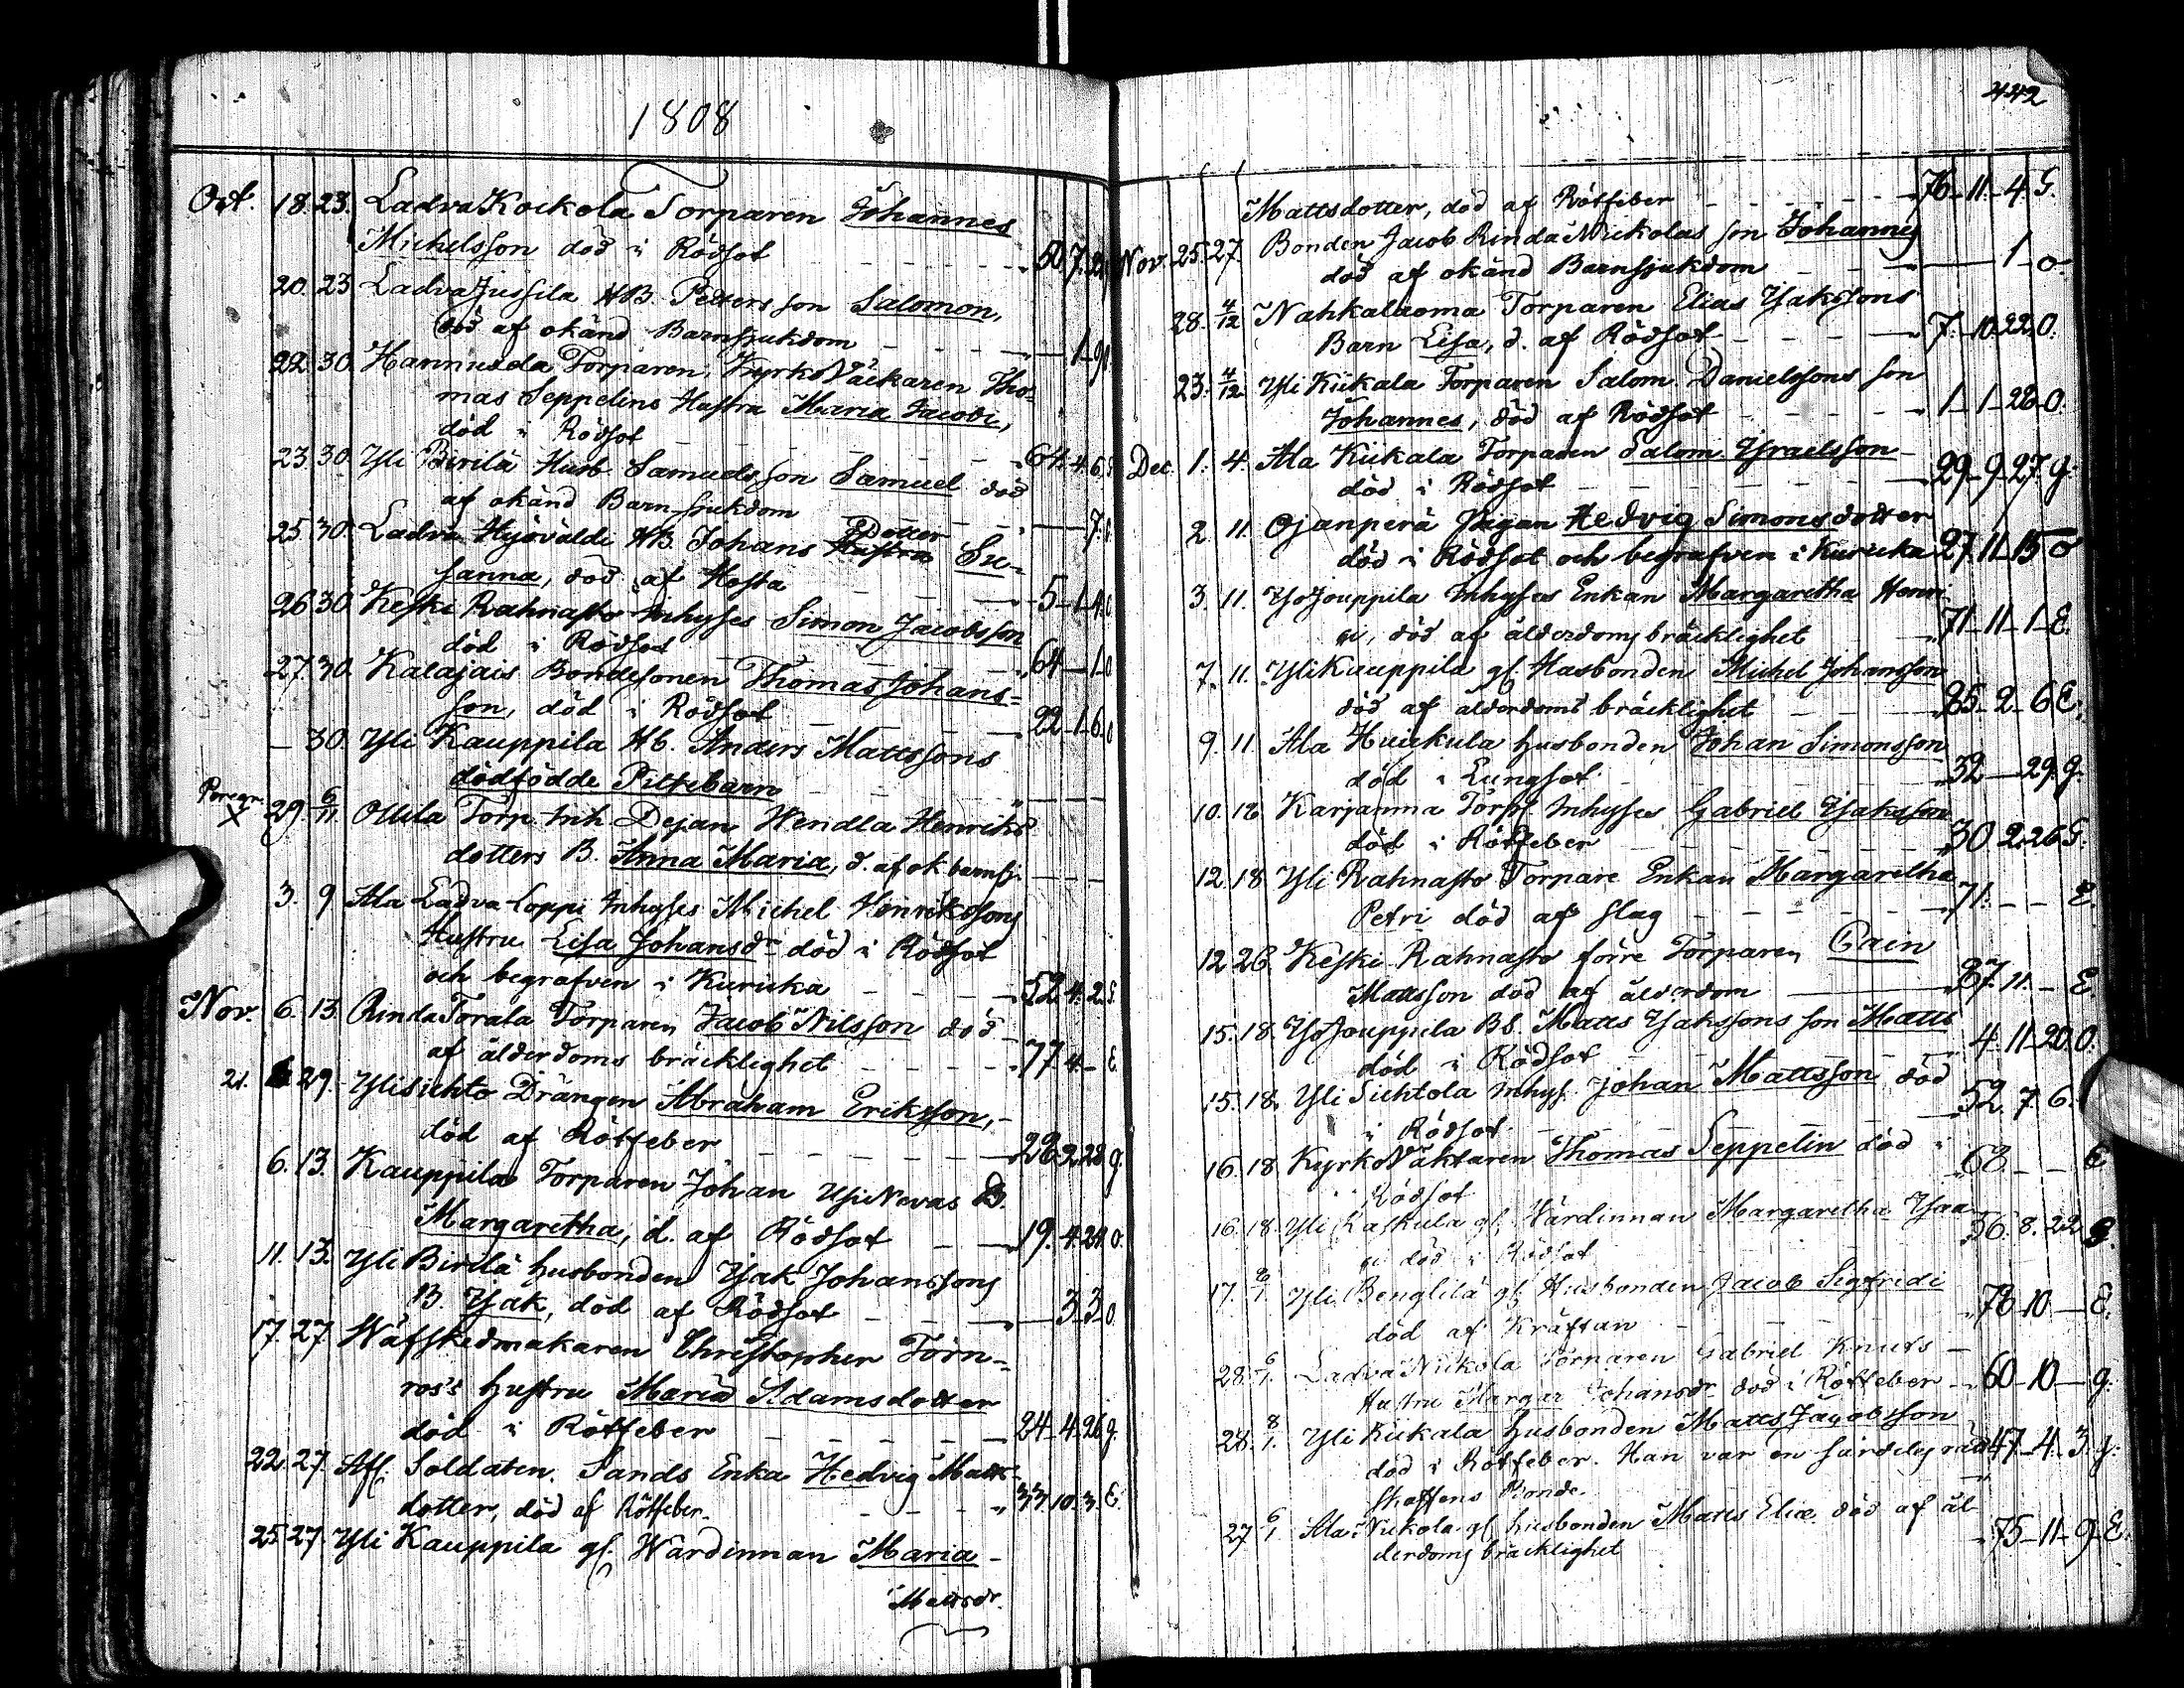 1808
Oct. 18. 23. Ladva Kockola Torparen Johannes
Michelsson död i Rödsot - - - - 50. 7.
20. 23 Ladva Jussila HB. Petters son Salomon,
död af okänd Barnsjukdom - - - 1-9
22. 30. Hannuxela Torparen, KyrkoWäckaren Tho-
mas Seppelins Hustru Maria Jacobi,
död i Rödsot - - - 64. 4. 6.
23. 30. Yli Birilä Husb Samuels son Samuel död
af okänd Barnsjukdom - - - 7.
Dotter
25. 30. Ladva Hyövälde HB. Johans Hustru Su-
sanna, död af Hosta - - - 5-1-4. 0
26. 30. Keski Rahnasto Inhyses Simon Jacobsson
död i Rödsot - - - 64-1-0
27. 30. Kalajais Bondesonen Thomas Johans-
son, död i Rödsot - - - 22-1-6. 0
- 30. Yli Kauppila Hb. Anders Mattssons
dödfödde Piltebarn - - -
Peregr. x 29. 6/11. Ollila Torp. Inh Dejan Wendla Henriks
dotters B. Anna Maria, d. af ok barnsj. - - -
3. 9 Ala Ladva Loppi Inhyses Michel Henrikssons
Hustru Lisa Johansdr död i Rödsot
och begrafven i Kuricka - - - 52. 4. 2. G.
Nov. 6. 13. Rinda Torala Torparen Jacob Nilsson död
af ålderdoms bräcklighet - - - 77. 4.- E
21. 29. Ylisichto Drängen Abraham Eriksson,
död af Rötfeber - - - 22. 2. 28 g.
6. 13. Kauppila Torparen Johan YliNevas D.
Margaretha, d. af Rödsot - - 19. 4. 24. 0.
11. 13. Yli Birilä husbonden Ysak Johanssons
B. Ysak, död af Rödsot - - 3-3-0.
17. 27. Wäfskedmakaren Christopher Törn-
ros's hustru Maria Adamsdotter
död i Rötfeber - - - 24-4-26 g.
22. 27. Afl. Soldaten Sands Enka Hedvig Matts-
dotter, död af Rötfeber. - - - 33. 10. 3. E.
25. 27. Yli Kauppila gl. Wärdinnan Maria
Mattsdr.
442
Mattsdotter, död af Rötfeber - - - 76-11-4. G.
Nov. 25. 27. Bonden Jacob Rinda Nickolas son Johannes
död af okänd Barnsjukdom - - - 1-0-
28. 4/12 Nahkalaoma Torparen Elias Ysakssons
Barn Lisa, d. af Rödsot - - - 7-10-22. 0.
23. 4/12 Yli Kiikala Torparen Salom. Danielssons son
Johannes, död af Rödsot - - - 1-1-28-0.
Dec. 1. 4. Ala Kiikala Torparen Salom. Ysraelsson
död i Rödsot - - - 29-9-27 g.
2 11. Ojanperä Pigan Hedvig Simonsdotter
död i Rödsot och begrafven i Kuricka 27. 11-15 0
3. 11. YoJouppila Inhyses Enkan Margaretha Henri-
ci, död af ålderdoms bräcklighet - 71-11-1-E.
7. 11. Yli Kauppila gl. Husbonden Michel Johansson
död af ålderdoms bräcklighet - - 85-2-6 E.
9. 11 Ala Huickula husbonden Johan Simonsson
död i Lungsot - 52-29. g.
10. 18. Karjanma Torp. Inhyses Gabriel Ysaksson
död i Rötfeber - - - 30. 2. 26 G.
12. 18. Yli Rahnasto Torpare Enkan Margaretha
Petri död af slag - - - 71. - - E.
12 26. Keski Rahnasto förre Torparen Cain
Mattsson död af ålderdom - 87. 11. - E.
15. 18. YoJouppila Bb. Matts Ysakssons son Matts
död i Rödsot - - - 4. 11-20. 0.
15. 18. Yli Sichtola Inhys. Johan Mattsson död
i Rödsot - - - 52. 7. 6.
16. 18 KyrkoWäktaren Thomas Seppelin död i
Rödsot 68. - - E
16. 18. Yli Laskula gl. Wärdinnan Margaretha Ysaa-
ci död i Rödsot 56. 8. 22 G.
17. Yli Benglilä gl. Husbonden Jacob Sigfridi
död af Kräftan - - 78-10-E.
28. 6/1. Ladva Nickola Torparen Gabriel Knuts
Hustru Margar Johansdr död i Rötfeber - 60-10-g.
28. 8/1. Yli Kiikala husbonden Matts Jacobsson
död i Rötfeber. Han var en särdeles räd- 47-4-3. g.
skaffens Bonde.
27 6/1 Ala Nickola gl. husbonden Matts Eliæ död af ål-
derdoms bräcklighet 75-11-9-E.